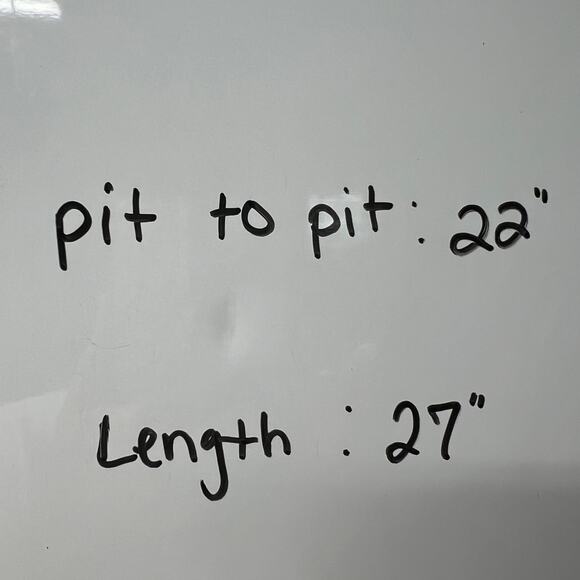 pit to pit: 22"
Length : 27"